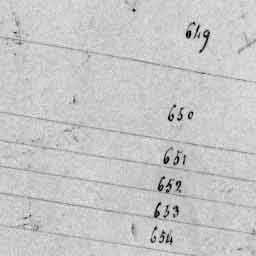 649
650
651
652
653
654